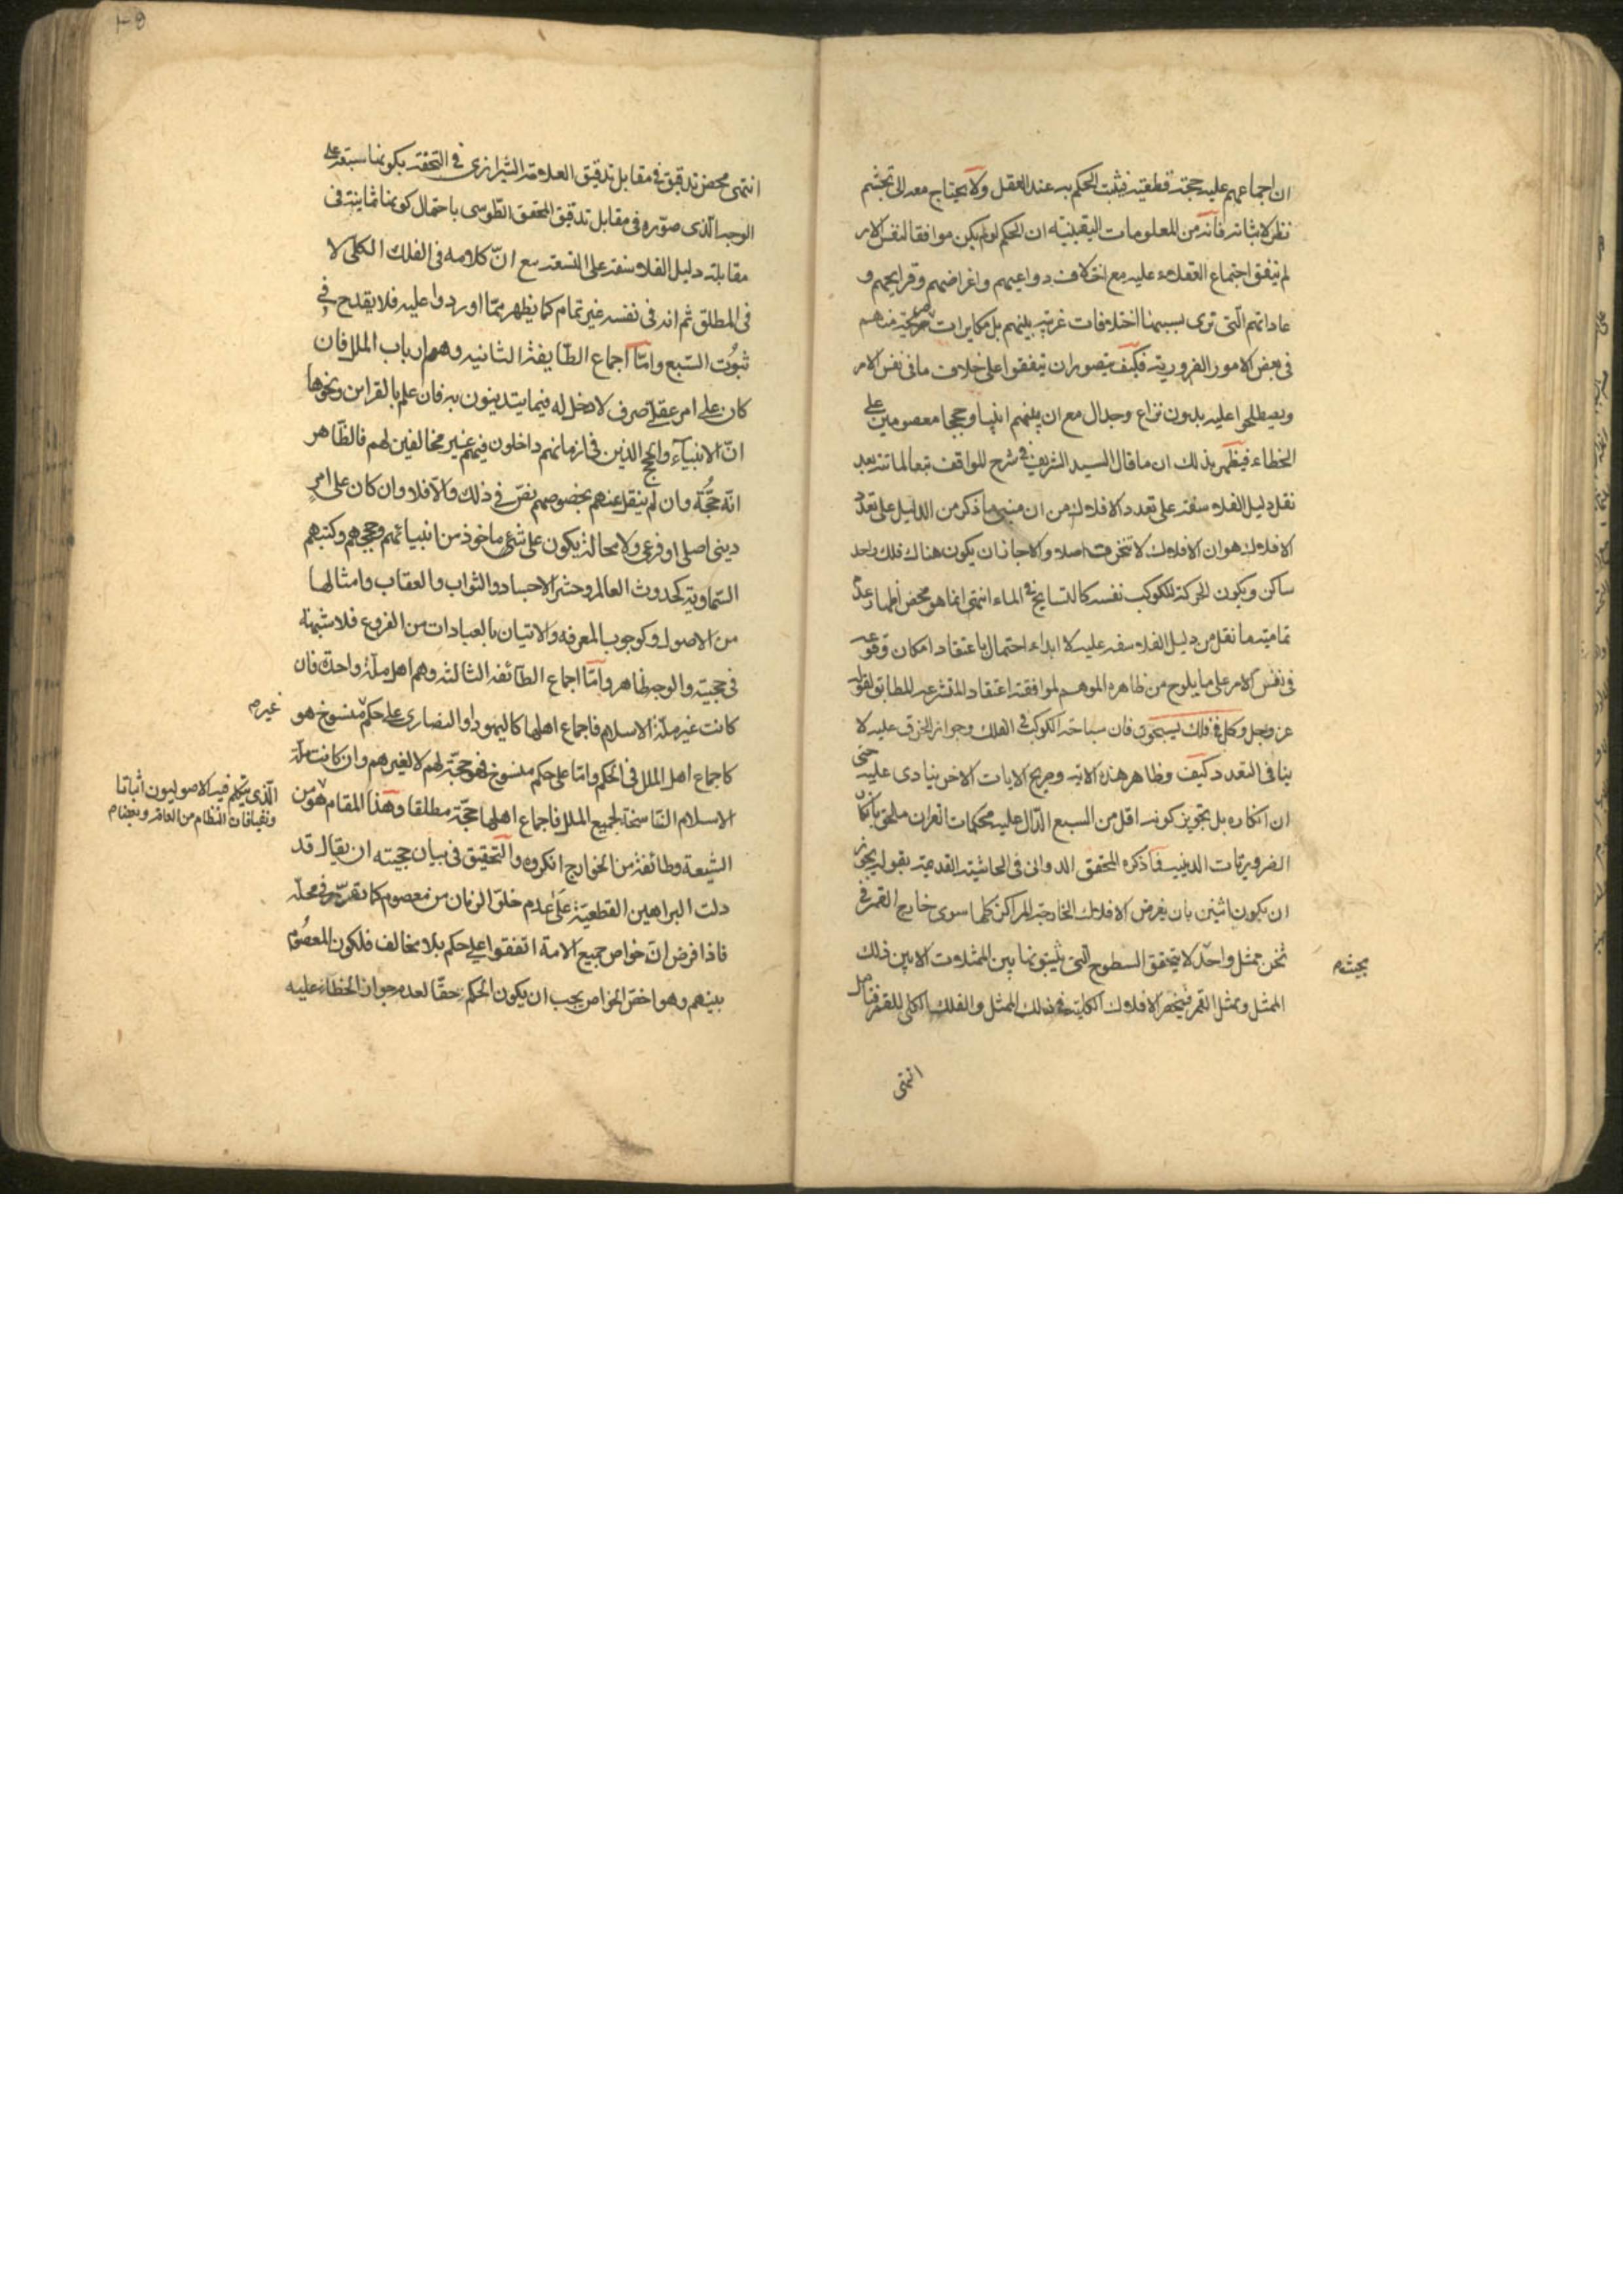 ان اجماعهم عليه حجة قطعية فيثبت الحكم به عند العقل ولا يحتاج معه الى تجشم
نظر لاثباته فانه من المعلومات اليقينية ان الحكم لو لم يكن موافقا لنفس الامر
لم يتفق اجتماع العقلاء عليه مع اختلاف دواعيهم واغراضهم وقرايحهم و
عاداتهم التى ترى بسببها اختلافات غريبة بينهم بل مكابرات صريحة منهم
فى بعض الامور الضرورية فكيف يتصور ان يتفقوا على خلاف ما فى نفس الامر
ويصطلحوا عليه بدون نزاع وجدال مع ان بينهم انبيا وحججا معصومين على
الخطاء فيظهر بذلك ان ما قال السيد الشريف فى شرح المواقف تبعا لماتنه بعد
نقل دليل الفلاسفة على تعدد الافلاك من ان مبنى ما ذكر من الدليل على تعدد
الافلاك هو ان الافلاك لا تنخرق اصلا والا جاز ان يكون هناك فلك واحد
ساكن ويكون الحركة للكوكب نفسه كالسابح فى الماء انتهى انما هو محض اظهار عدم
تمامية ما نقل من دليل الفلاسفة عليه لا ابداء احتمال باعتقاد امكان وقوعه
فى نفس الامر على ما يلوح من ظاهره الموهم لموافقة اعتقاد المتشرعة المطابق لقوله
عز وجل وكل فى فلك يسبحون فان سباحة الكوكب فى الفلك وجواز الخرق عليه لا
ينافى التعدد كيف وظاهر هذه الاية وصريح الايات الاخر ينادى عليه حتى
ان انكاره بل تجويز كونه اقل من السبع الدال عليه محكمات القران ملحق بانكار
الضروريات الدينية فما ذكره المحقق الدوانى فى الحاشية القديمة بقوله يجوز
ان يكون اثنين بان يفرض الافلاك الخارجة المراكز كلها سوى خارج القمر فى
ثخن ممثل واحد لا يتحقق السطوح التى يثبتونها بين الممثلات الا بين ذلك
بحيث م
الممثل وممثل القمر فينحصر الافلاك الكلية فى ذلك الممثل والفلك الكلى للقمر فتامل
انتهى
انتهى محض تدقيق فى مقابل تدقيق العلامة الشيرازى فى التحفة بكونها سبعة على
الوجه الذى صوره فى مقابل تدقيق المحقق الطوسى باحتمال كونها ثمانية فى
مقابلة دليل الفلاسفة على التسعة مع ان كلامه فى الفلك الكلى لا
فى المطلق ثم انه فى نفسه غير تمام كما يظهر مما اوردوا عليه فلا يقدح فى
ثبوت السبع واما اجماع الطايفة الثانية وهم ارباب الملل فان
كان على امر عقلى صرف لا دخل له فيما يتدينون به فان علم بالقراين ونحوها
ان الانبياء والحجج الذين فى ازمانهم داخلون فيهم غير مخالفين لهم فالظاهر
انه حجة وان لم ينقل عنهم بخصوصهم نص فى ذلك والا فلا وان كان على امر
دينى اصلى او فرعى ولا محالة يكون على شئ ماخوذ من انبيائهم وحججهم وكتبهم
السماوية كحدوث العالم وحشر الاجساد والثواب والعقاب وامثالها
من الاصول وكوجوب المعرفة والاتيان بالعبادات من الفروع فلا شبهة
فى حجيته والوجه ظاهر واما اجماع الطائفة الثالثة وهم اهل ملة واحدة فان
كانت غير ملة الاسلام فاجماع اهلها كاليهود او النصارى على حكم منسوخ هو
غير م
كاجماع اهل الملل فى الحكم واما على حكم منسوخ فهو حجة لهم لا لغيرهم وان كانت ملة
الاسلام الناسخة لجميع الملل فاجماع اهلها حجة مطلقا وهذا المقام هو من
الذى يتكلم فيه الاصوليون اثباتا
ونفيا فان النظام من العامة وبعض م
الشيعة وطائفة من الخوارج انكروه والتحقيق فى بيان حجيته ان يقال قد
دلت البراهين القطعية على عدم خلو الزمان من معصوم كما تقرر فى محله
فاذا فرض ان خواص جميع الامة اتفقوا على حكم بلا مخالف فلكون المعصوم
بينهم وهو اخص الخواص يجب ان يكون الحكم حقا لعدم جواز الخطاء عليه